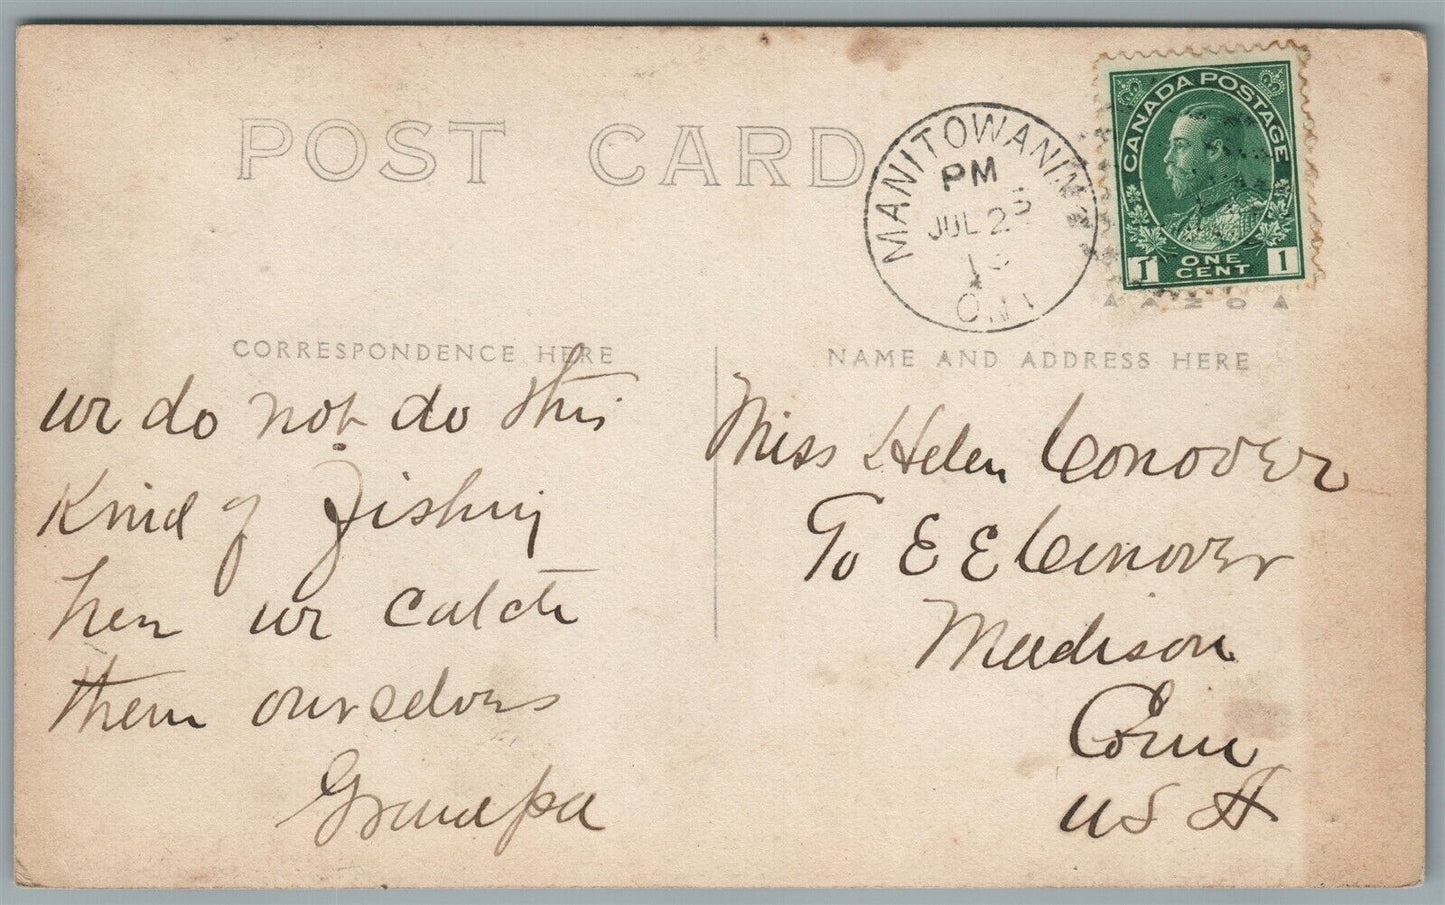 POST CARD
MANITOWANING
PM
JUL 23
ONT
CANADA POSTAGE
1 ONE CENT 1
CORRESPONDENCE HERE
NAME AND ADDRESS HERE
we do not do this
Kind of Fishing
her we catch
them ourselves
Grandpa
Miss Helen Conover
To E E Conover
Madison
Conn
U S A